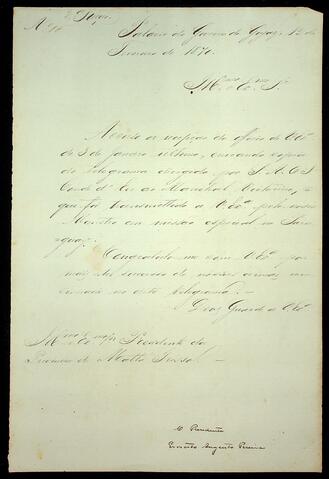 2ª Secção
Nº 14
Palacio do Governo de Goyaz, 12 de
Fevereiro de 1870.
Illmo e Exmo Sr.
Accuso a recepção do officio de V. Exª
de 3 de Janeiro ultimo, enviando copia
do telegramma dirigido por S. A. O S.
Conde d'Eu ao Marechal, e
que foi transmittido a V. Exª pelo nosso
Ministro em missão especial no Para-
guay.
Congratulo-me com V. Exª por
mais successo de nossas armas
no dito telegramma.
Deos Guarde a V. Exª
Illmo e Exmo Snr Presidente da
Provincia de Matto Grosso
O Presidente
Ernesto Augusto Pereira